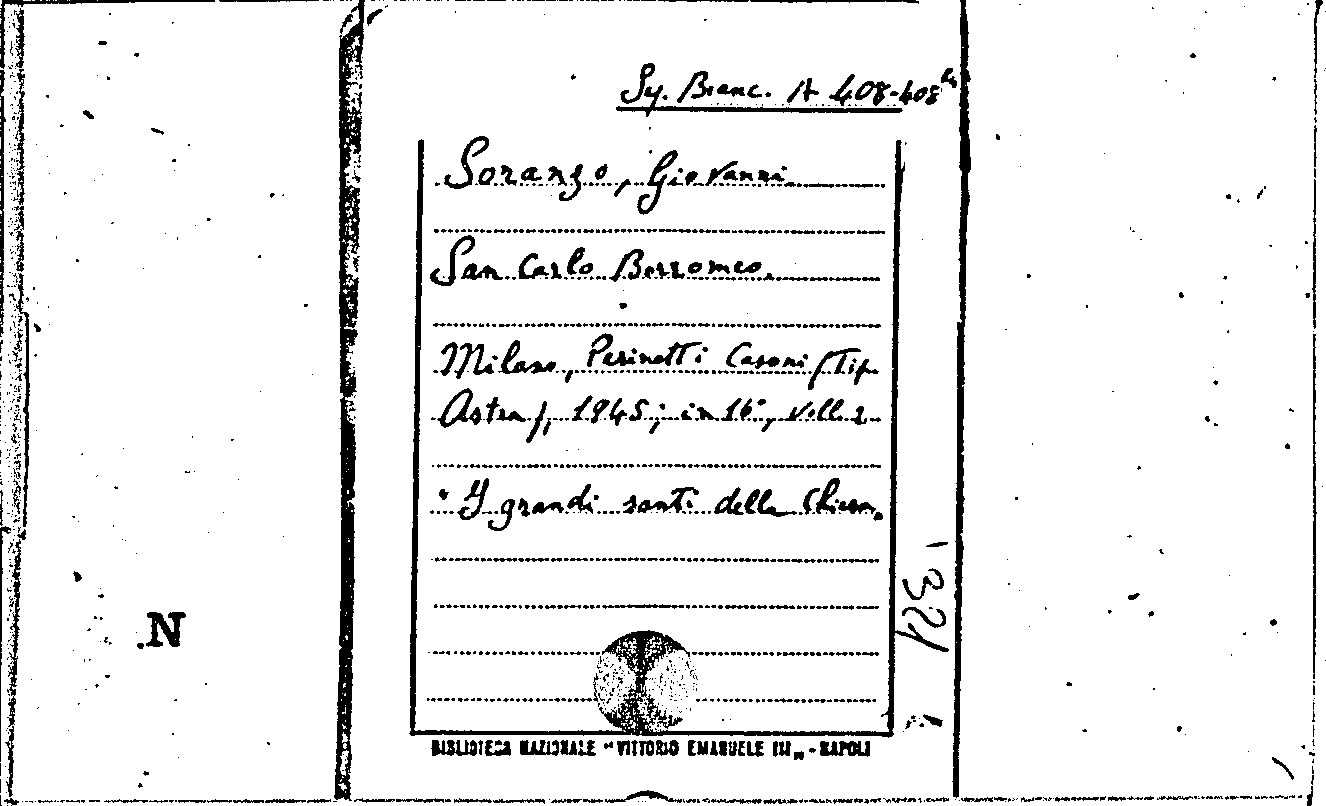 Sy. Branc. A 408-408
Soranzo, Giovanni
San Carlo Borromeo.
Milano, Perinetti Casoni (Tip.
Astra), 1945; in 16°, voll. 2
"I grandi santi della Chiesa„
'321
N.
BIBLIOTECA NAZIONALE "VITTORIO EMANUELE III„ - NAPOLI